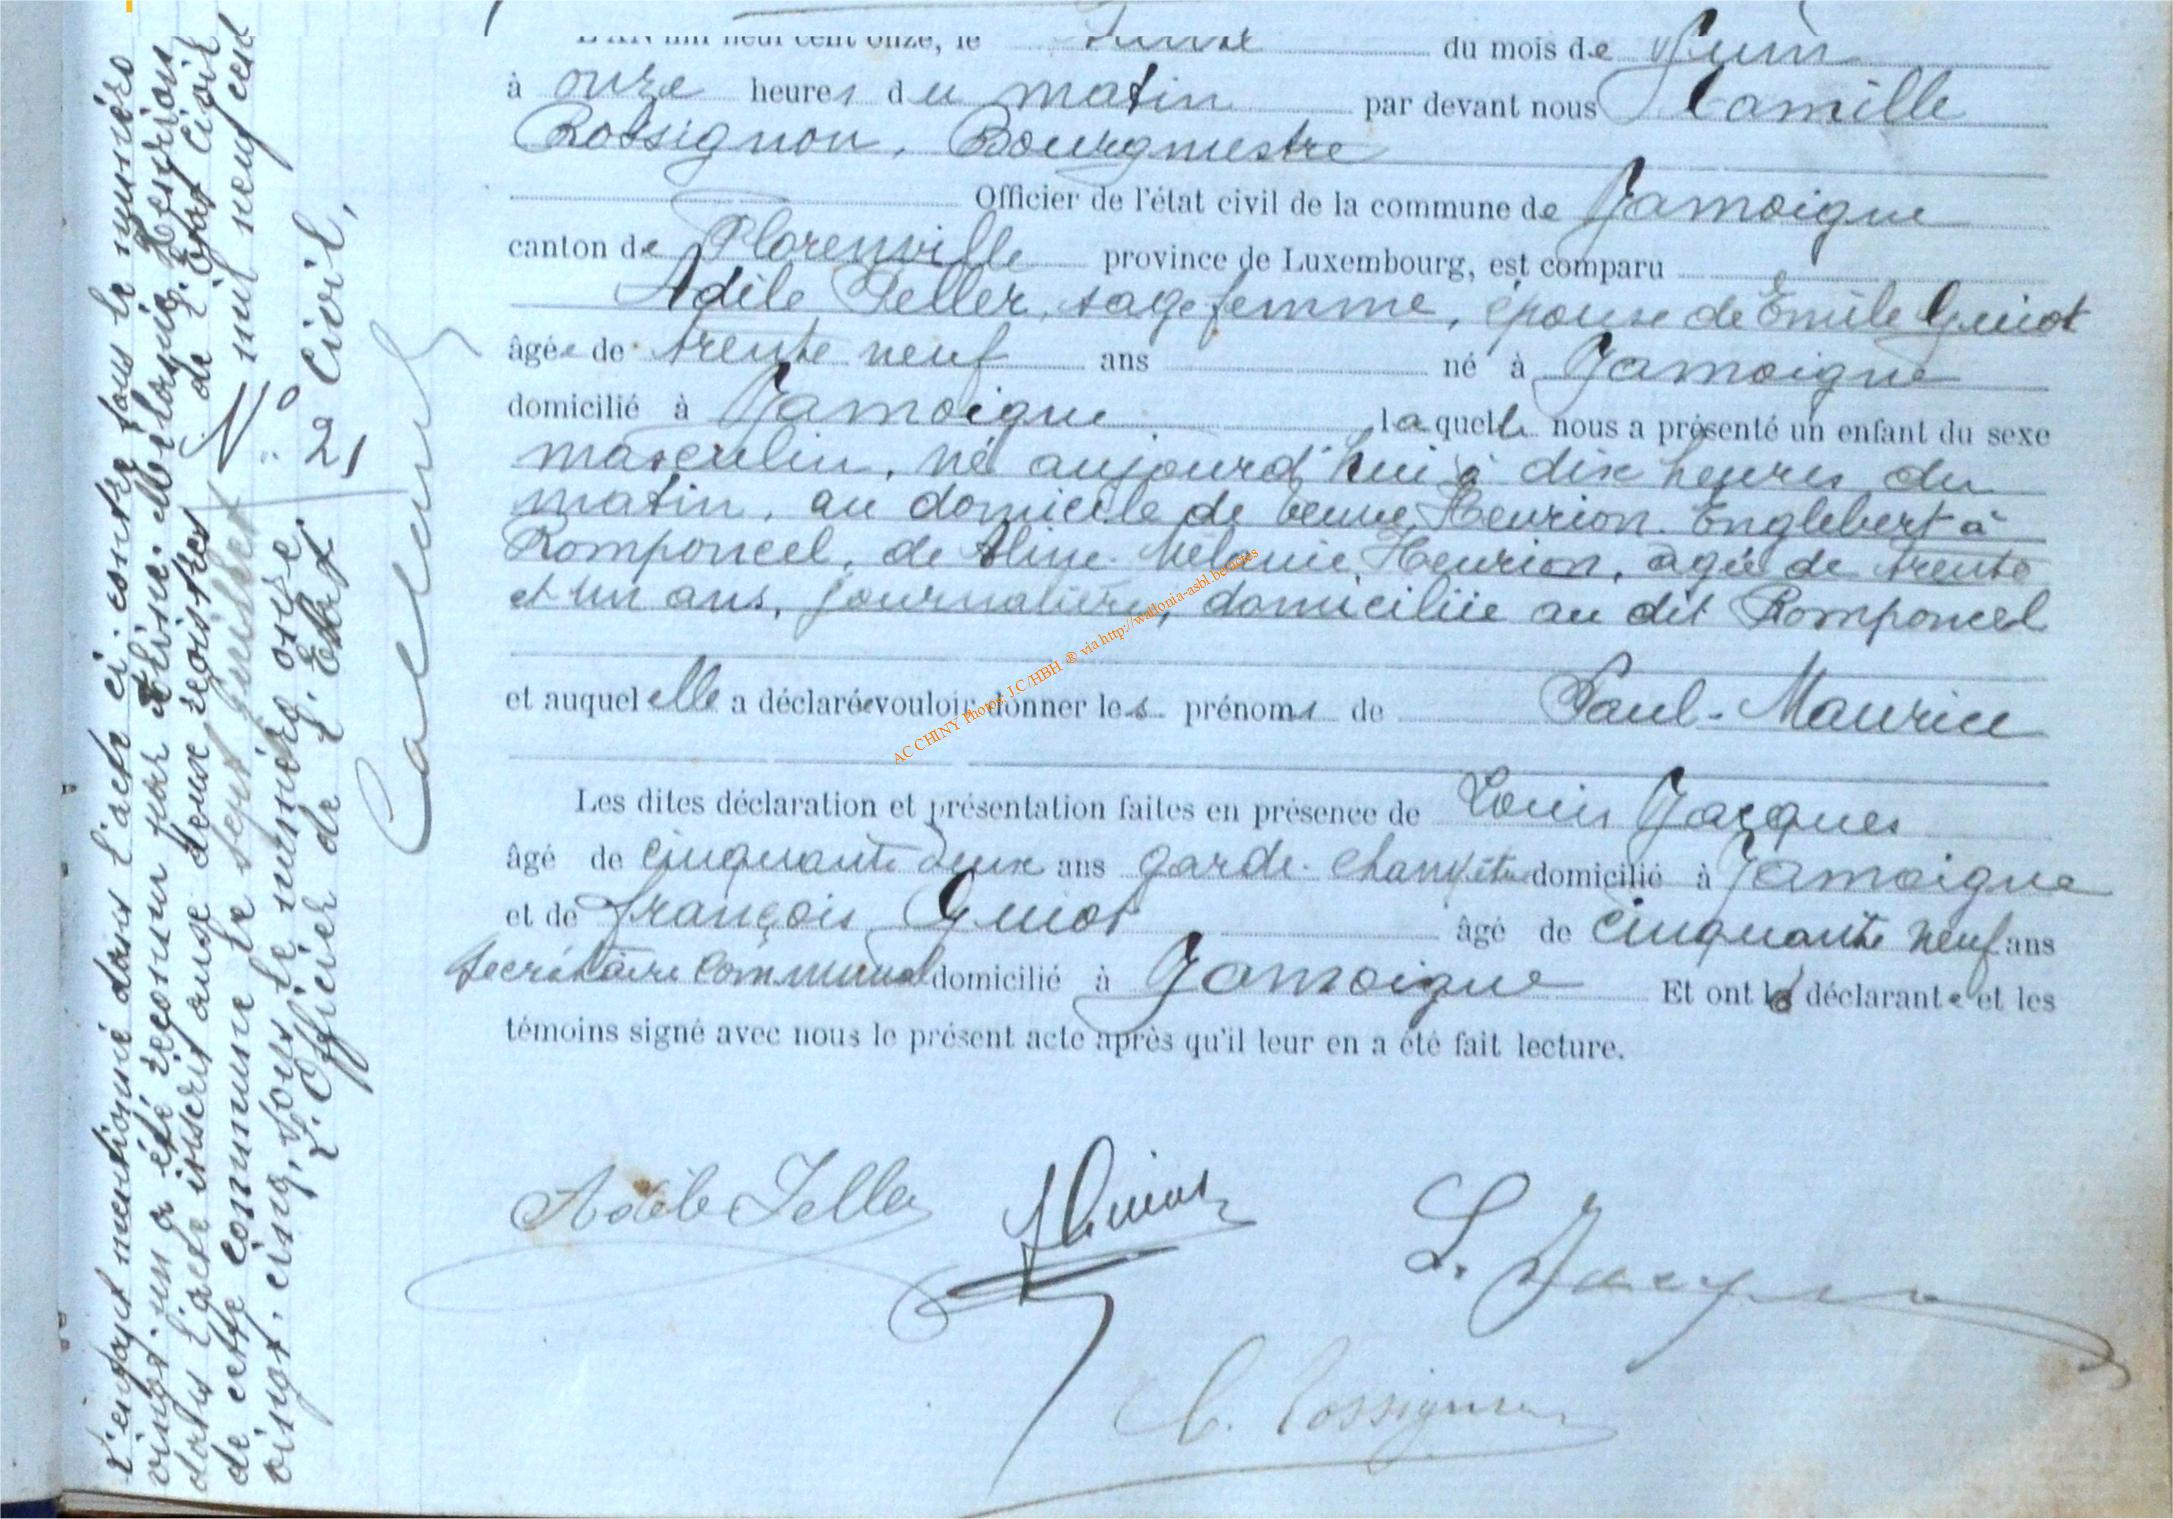 L'AN mil neuf cent onze, le du mois de Juin
à onze heures du matin par devant nous Camille
Rossignon, Bourgmestre
Officier de l'état civil de la commune de Jamoigne
canton de Florenville province de Luxembourg, est comparu
Adèle Feller, sage femme, épouse de Emile Guiot
âgée de trente neuf ans né à Jamoigne
domicilié à Jamoigne laquelle nous a présenté un enfant du sexe
masculin, né aujourd'hui à dix heures du
matin, au domicile de veuve Henrion-Englebert à
Romponcel, de Aline-Mélanie Henrion, agée de trente
et un ans, journalière, domiciliée au dit Romponcel
et auquel elle a déclarée vouloir donner les prénoms de Paul-Maurice
Les dites déclaration et présentation faites en présence de Louis Jacques
âgé de cinquante deux ans garde-champêtre domicilié à Jamoigne
et de françois Guiot âgé de cinquante neuf ans
Secrétaire communal domicilié à Jamoigne Et ont la déclarante et les
témoins signé avec nous le présent acte après qu'il leur en a été fait lecture.
Adèle Feller
f Guiot
L. Jacques
C. Rossignon
N° 21
L'enfant mentionné dans l'acte ci-contre sous le numéro
vingt-un a été reconnu par Aline-Mélanie Henrion
dans l'acte inscrit aux deux registres de l'état civil
de cette commune le sept juillet mil neuf cent
vingt-cinq, sous le numéro onze.
L'Officier de l'Etat Civil,
AC CHINY Photos J.C/HBH ® via http://wallonia-asbl.be/actes